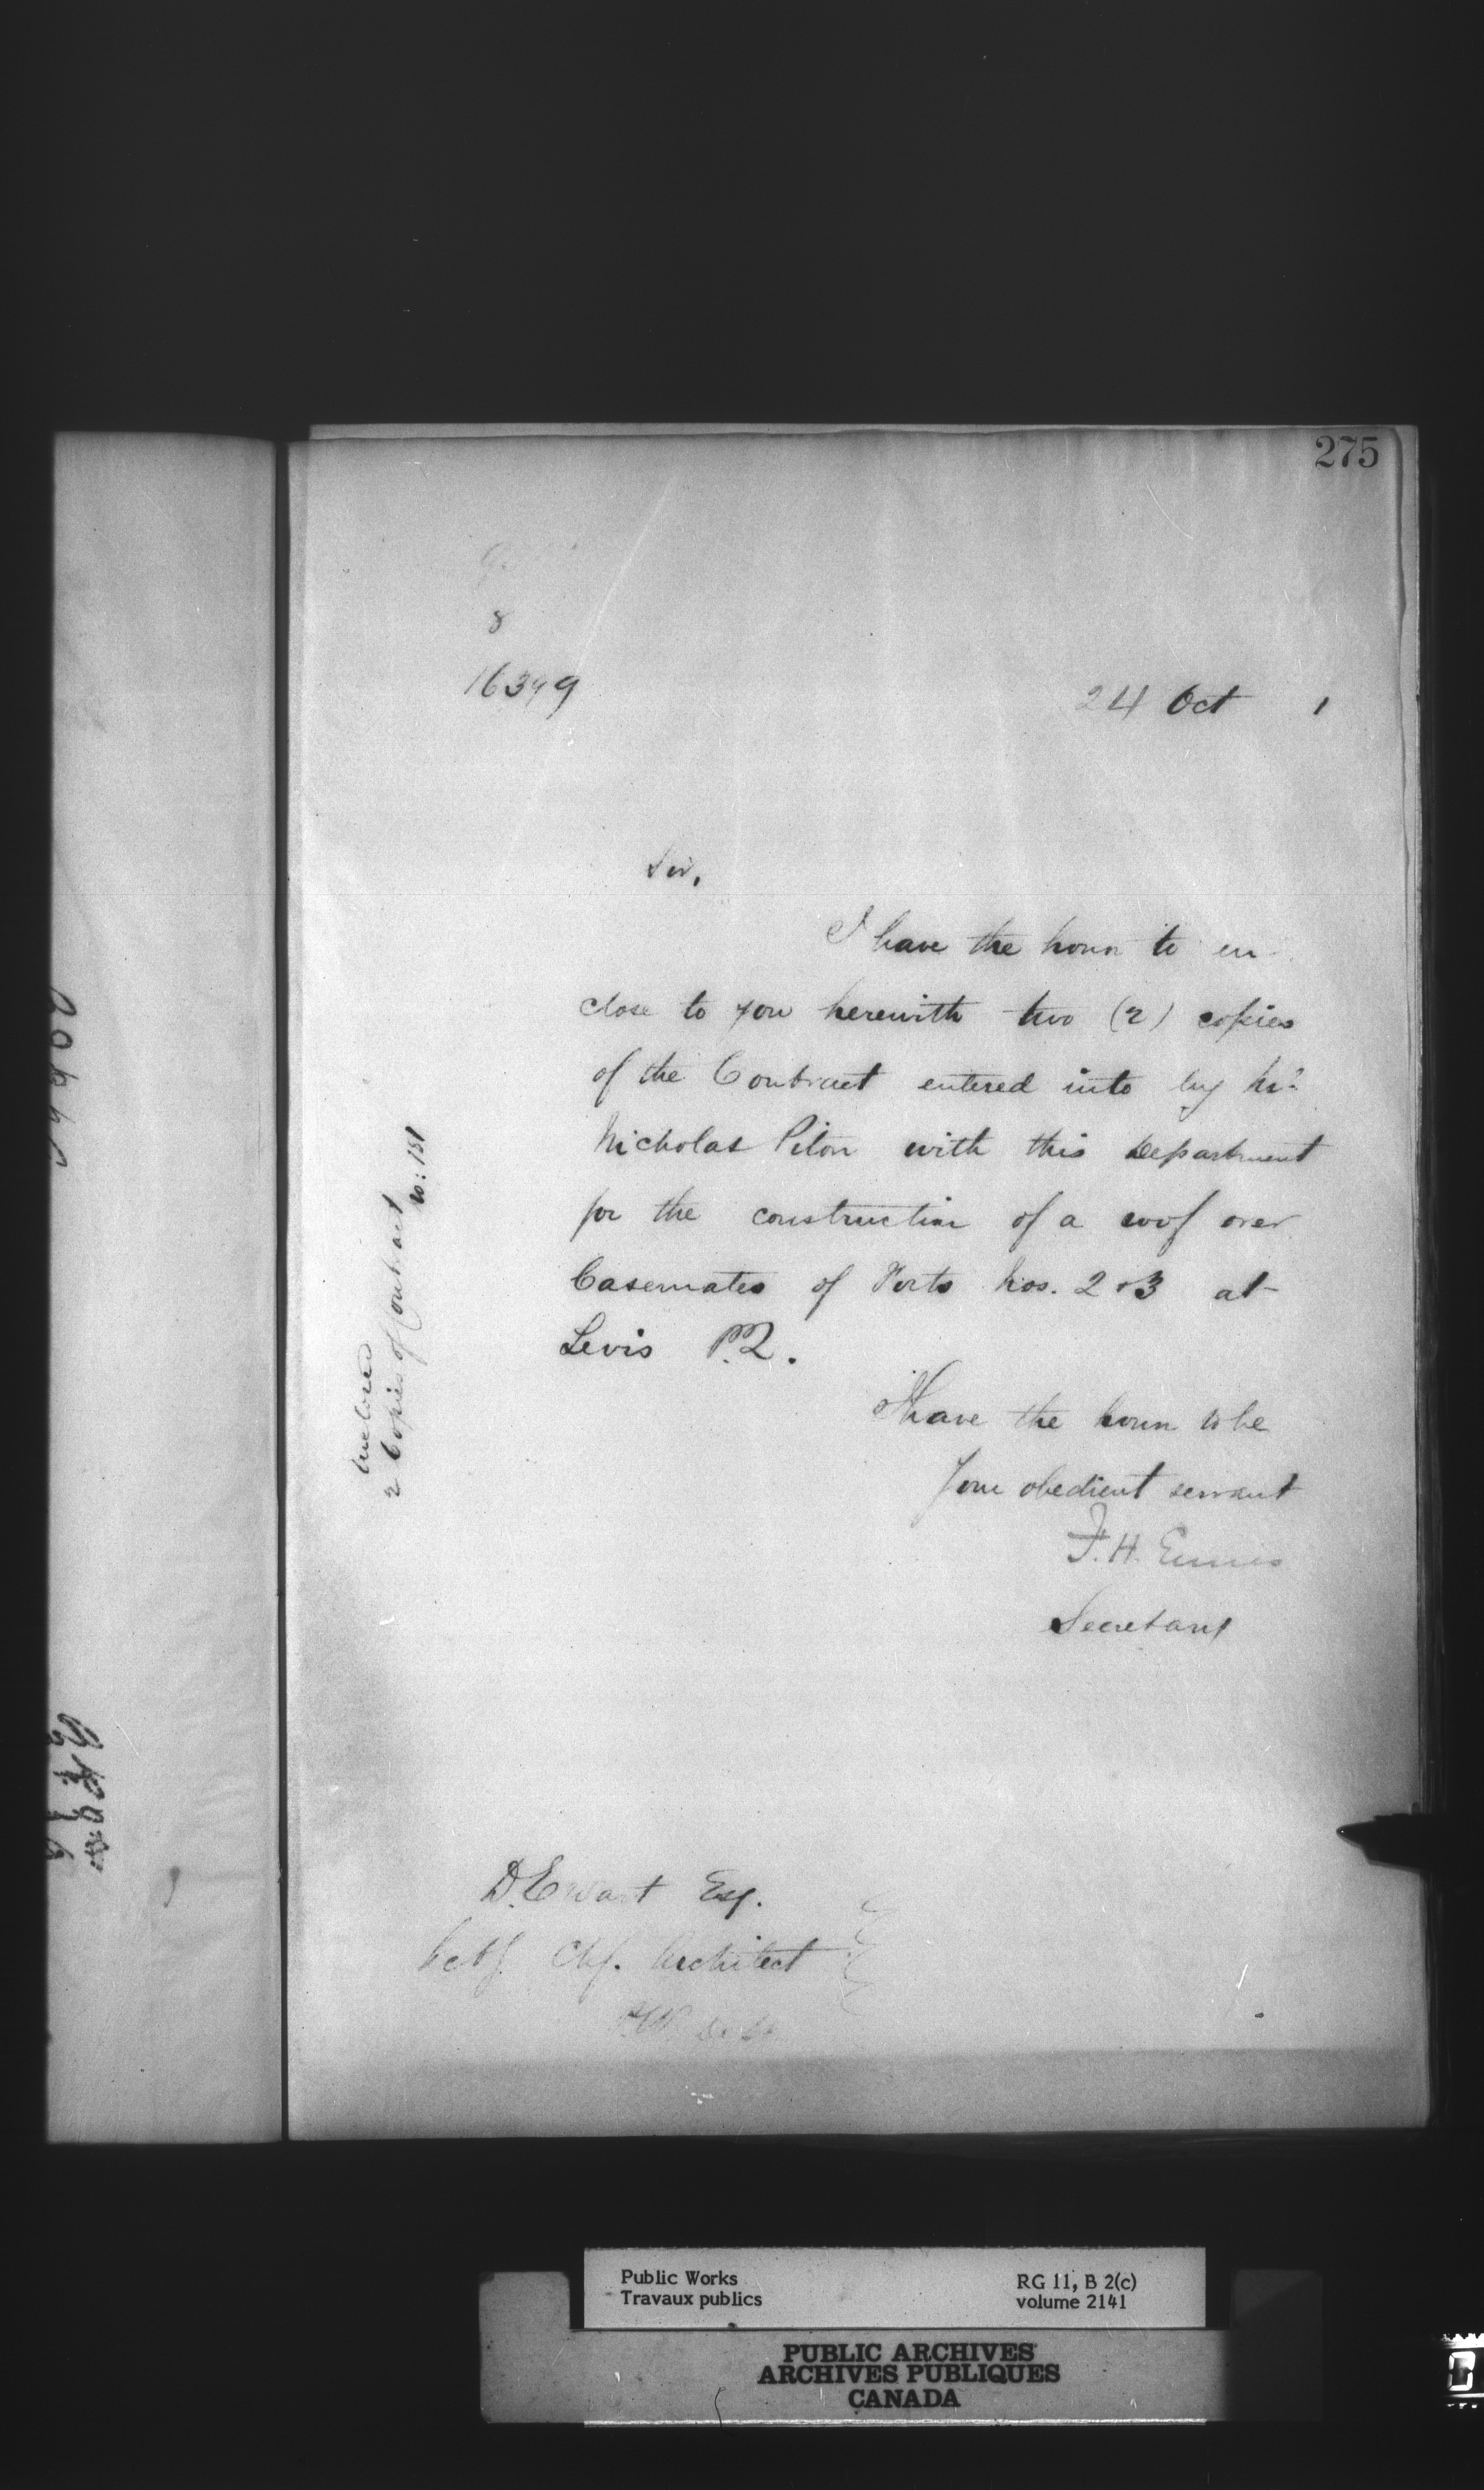 275
8
16399
24 Oct 1
Sir,
I have the honor to en-
close to you herewith two (2) copies
of the Contract entered into by Mr.
Nicholas Piton with this Department
for the construction of a roof over
Casemates of Forts Nos. 2 & 3 at
Levis P.Q.
I have the honor to be
Your obedient servant
F. H. Ennis
Secretary
Enclosed
2 Copies of Contract
No: 181
D. Ewart Esq.
Actg Chf. Architect
P.W. Dept
Public Works
Travaux publics
RG 11, B 2(c)
volume 2141
PUBLIC ARCHIVES
ARCHIVES PUBLIQUES
CANADA